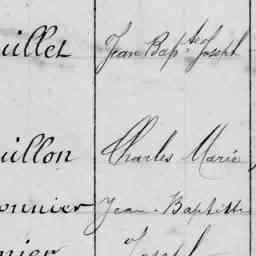 uillet Jean Bapte Joseph
uillon Charles Marie
onnier Jean-Baptiste
nier Joseph